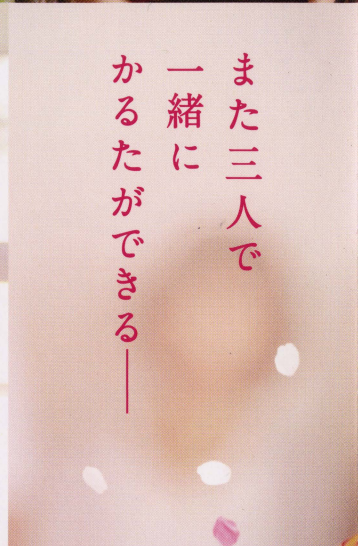 また三人で
一緒に
かるたができる――